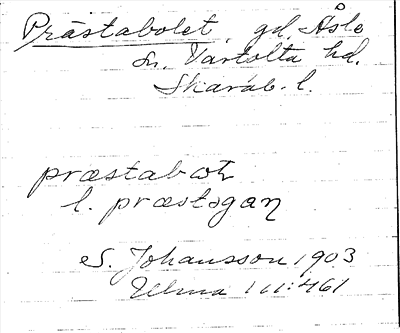 Prästabolet, gd, Åsle
sn. Vartofta hd.
Skarab. l.
præstabωt
l. præstəgaɳ
S. Johansson 1903
Ulma 111:461